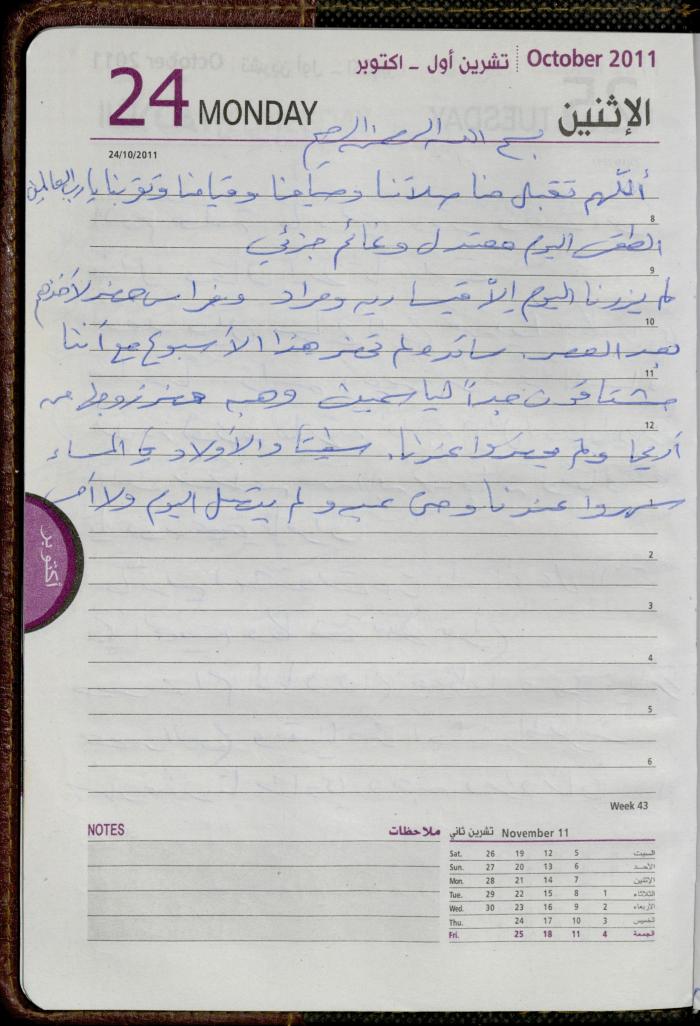 October 2011 تشرين أول - اكتوبر
24 MONDAY الإثنين
24/10/2011
بسم الله الرحمن الرحيم
أللهم تقبل منا صلاتنا وصيامنا وقيامنا وتوبتنا يا رب العالمين
8
الطقس اليوم معتدل وغائم جزئي
9
لم يزرنا اليوم إلا قيس وماريه ومراد وفراس حضر لأخذهم
10
بعد العصر. ولم تحضر هذا الأسبوع مع أننا
11
مشتاقون جداً لياسمين وهبه حضر زوجها من
12
أريحا ولم يحضروا عندنا. والأولاد في المساء
سهروا عندنا وحتى لم يتصل اليوم ولا أمس
2
3
4
5
6
أكتوبر
Week 43
NOTES ملاحظات
November 11 تشرين ثاني
Sat. 26 19 12 5 السبت
Sun. 27 20 13 6 الأحد
Mon. 28 21 14 7 الإثنين
Tue. 29 22 15 8 1 الثلاثاء
Wed. 30 23 16 9 2 الأربعاء
Thu. 24 17 10 3 الخميس
Fri. 25 18 11 4 الجمعة